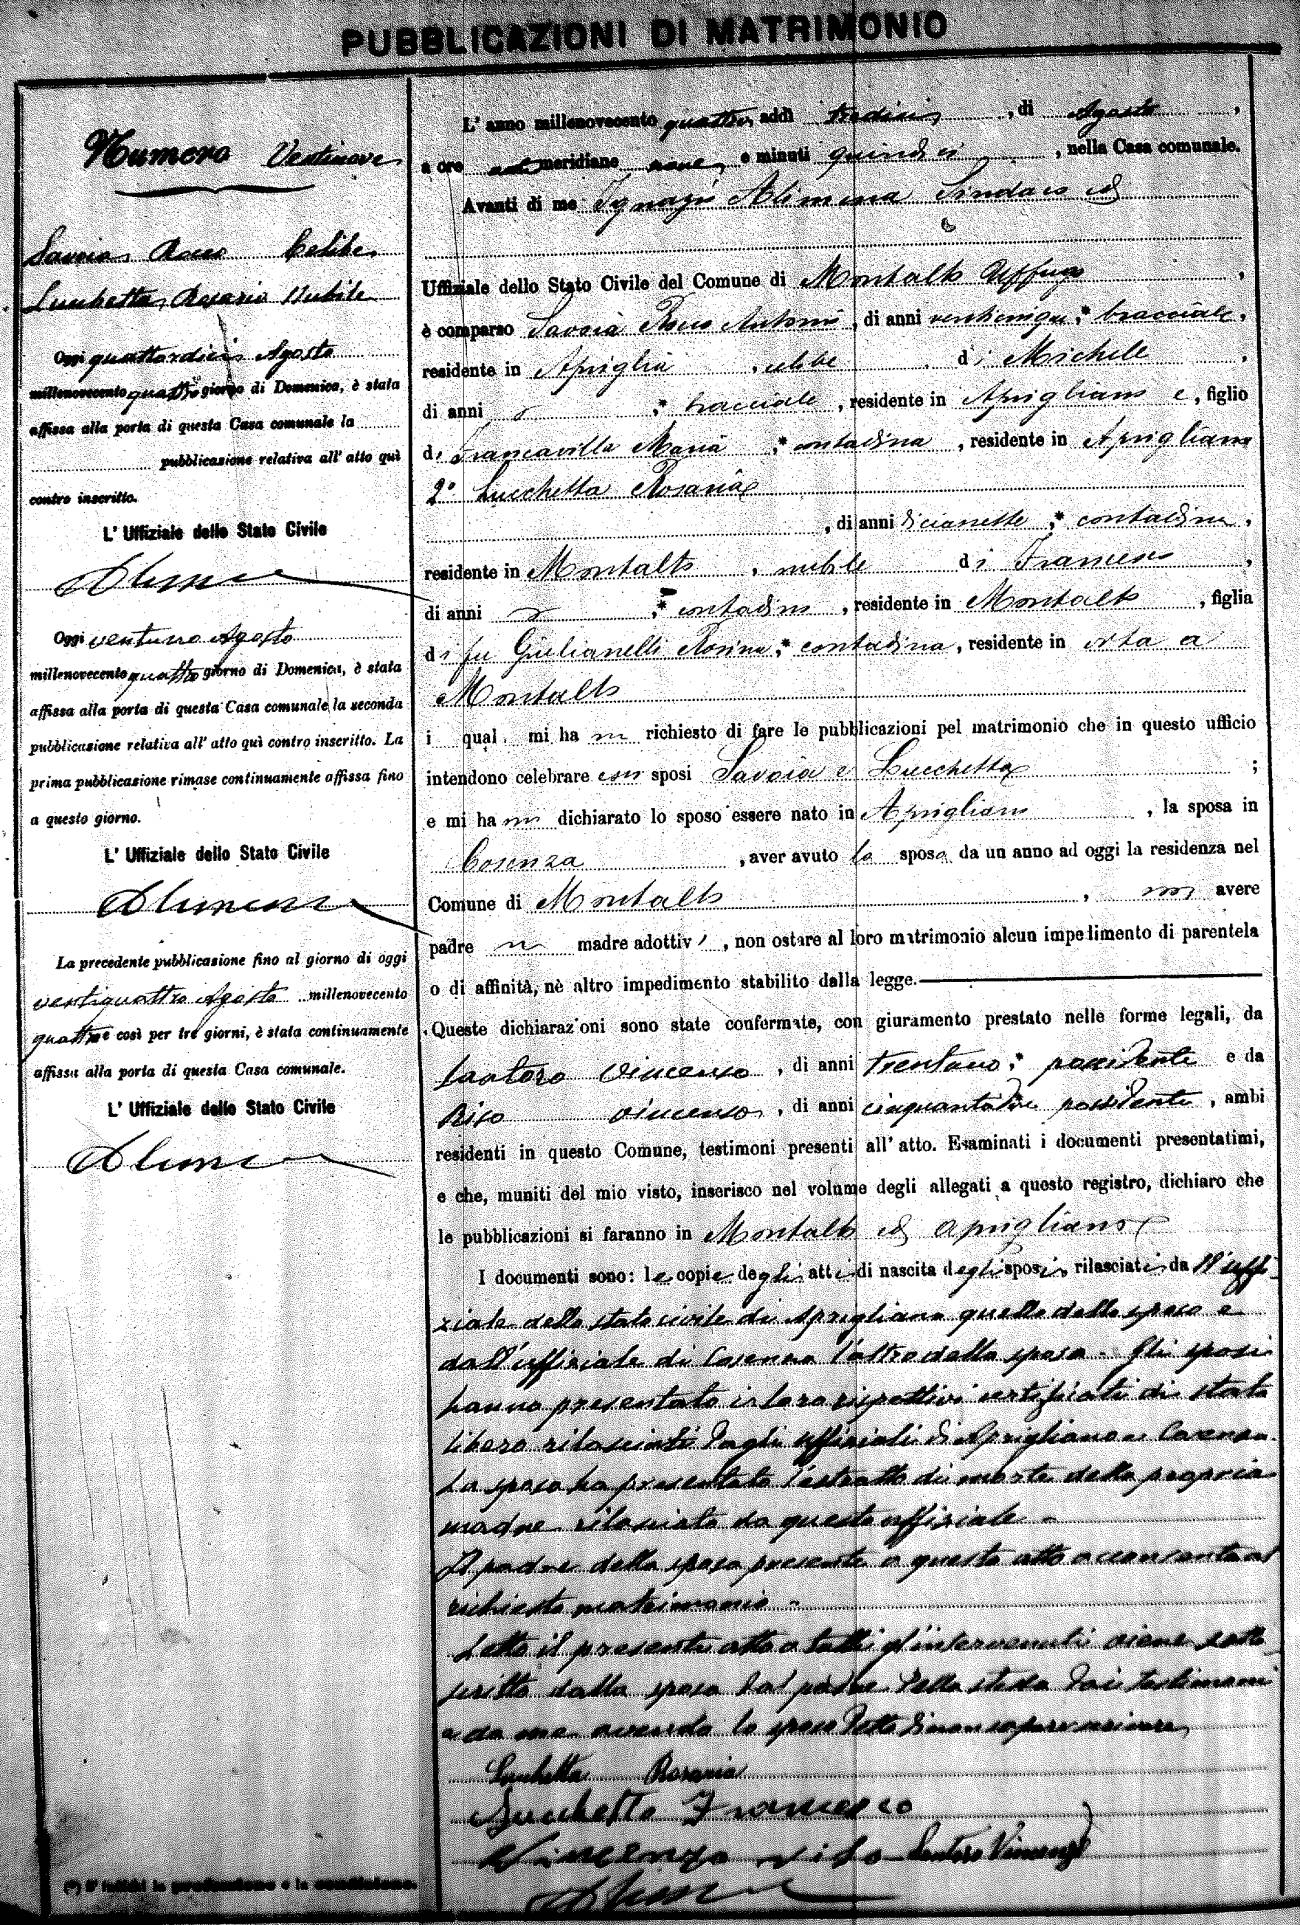 PUBBLICAZIONI DI MATRIMONIO
Numero Ventinove
Savoia Rocco Celibe
Lucchetta Rosaria Nubile
Oggi quattordici Agosto
millenovecento quattro giorno di Domenica, è stata
affissa alla porta di questa Casa comunale la
pubblicazione relativa all' atto quì
contro inscritto.
L' Uffiziale dello Stato Civile
Alimena
Oggi ventuno Agosto
millenovecento quattro giorno di Domenica, è stata
affissa alla porta di questa Casa comunale la seconda
pubblicazione relativa all' atto quì contro inscritto. La
prima pubblicazione rimase continuamente affissa fino
a questo giorno.
L' Uffiziale dello Stato Civile
Alimena
La precedente pubblicazione fino al giorno di oggi
ventiquattro Agosto millenovecento
quattro e così per tre giorni, è stata continuamente
affissa alla porta di questa Casa comunale.
L' Uffiziale dello Stato Civile
Alimena
(*) S' indichi la professione o la condizione.
L' anno millenovecento quattro, addì tredici, di Agosto,
a ore antimeridiane nove, e minuti quindici, nella Casa comunale.
Avanti di me Ignazio Alimena Sindaco ed
Uffiziale dello Stato Civile del Comune di Montalto Uffugo,
è comparso Savoia Rocco Antonio, di anni venticinque,* bracciale,
residente in Apriglia, celibe di Michele,
di anni ,* bracciale, residente in Aprigliano e, figlio
di Francavilla Maria,* contadina, residente in Aprigliano
2° Lucchetta Rosaria
, di anni dicianette,* contadina,
residente in Montalto, nubile di Francesco,
di anni ,* contadino, residente in Montalto, figlia
di fu Giulianelli Rosina,* contadina, residente in vita a
Montalto
i qual mi ha nno richiesto di fare le pubblicazioni pel matrimonio che in questo ufficio
intendono celebrare essi sposi Savoia e Lucchetta;
e mi ha nno dichiarato lo sposo essere nato in Aprigliano, la sposa in
Cosenza, aver avuto la sposa da un anno ad oggi la residenza nel
Comune di Montalto, non avere
padre nè madre adottivi, non ostare al loro matrimonio alcun impedimento di parentela
o di affinità, nè altro impedimento stabilito dalla legge.
Queste dichiarazioni sono state confermate, con giuramento prestato nelle forme legali, da
Santoro Vincenzo, di anni trentano,* possidente e da
Riso Vincenzo, di anni cinquantadue possidente, ambi
residenti in questo Comune, testimoni presenti all' atto. Esaminati i documenti presentatimi,
e che, muniti del mio visto, inserisco nel volume degli allegati a questo registro, dichiaro che
le pubblicazioni si faranno in Montalto ed Aprigliano
I documenti sono: le copie degli atti di nascita degli sposi, rilasciate da ll'uffi-
ziale dello stato civile di Aprigliano quello dello sposo e
dall'uffiziale di Cosenza l'altro della sposa. Gli sposi
hanno presentato i loro rispettivi certificati di stato
libero rilasciati dagli uffiziali di Aprigliano e Cosenza.
La sposa ha presentato l'estratto di morte della propria
madre rilasciato da questo uffiziale.
Il padre della sposa presente a questo atto acconsente al
richiesto matrimonio.
Letto il presente atto a tutti gl'intervenuti viene sotto
scritto dalla sposa dal padre della stessa dai testimoni
e da me avendo lo sposo detto di non sapere scrivere
Lucchetta Rosaria
Lucchetta Francesco
Vincenzo riso Santoro Vincenzo
Alimena